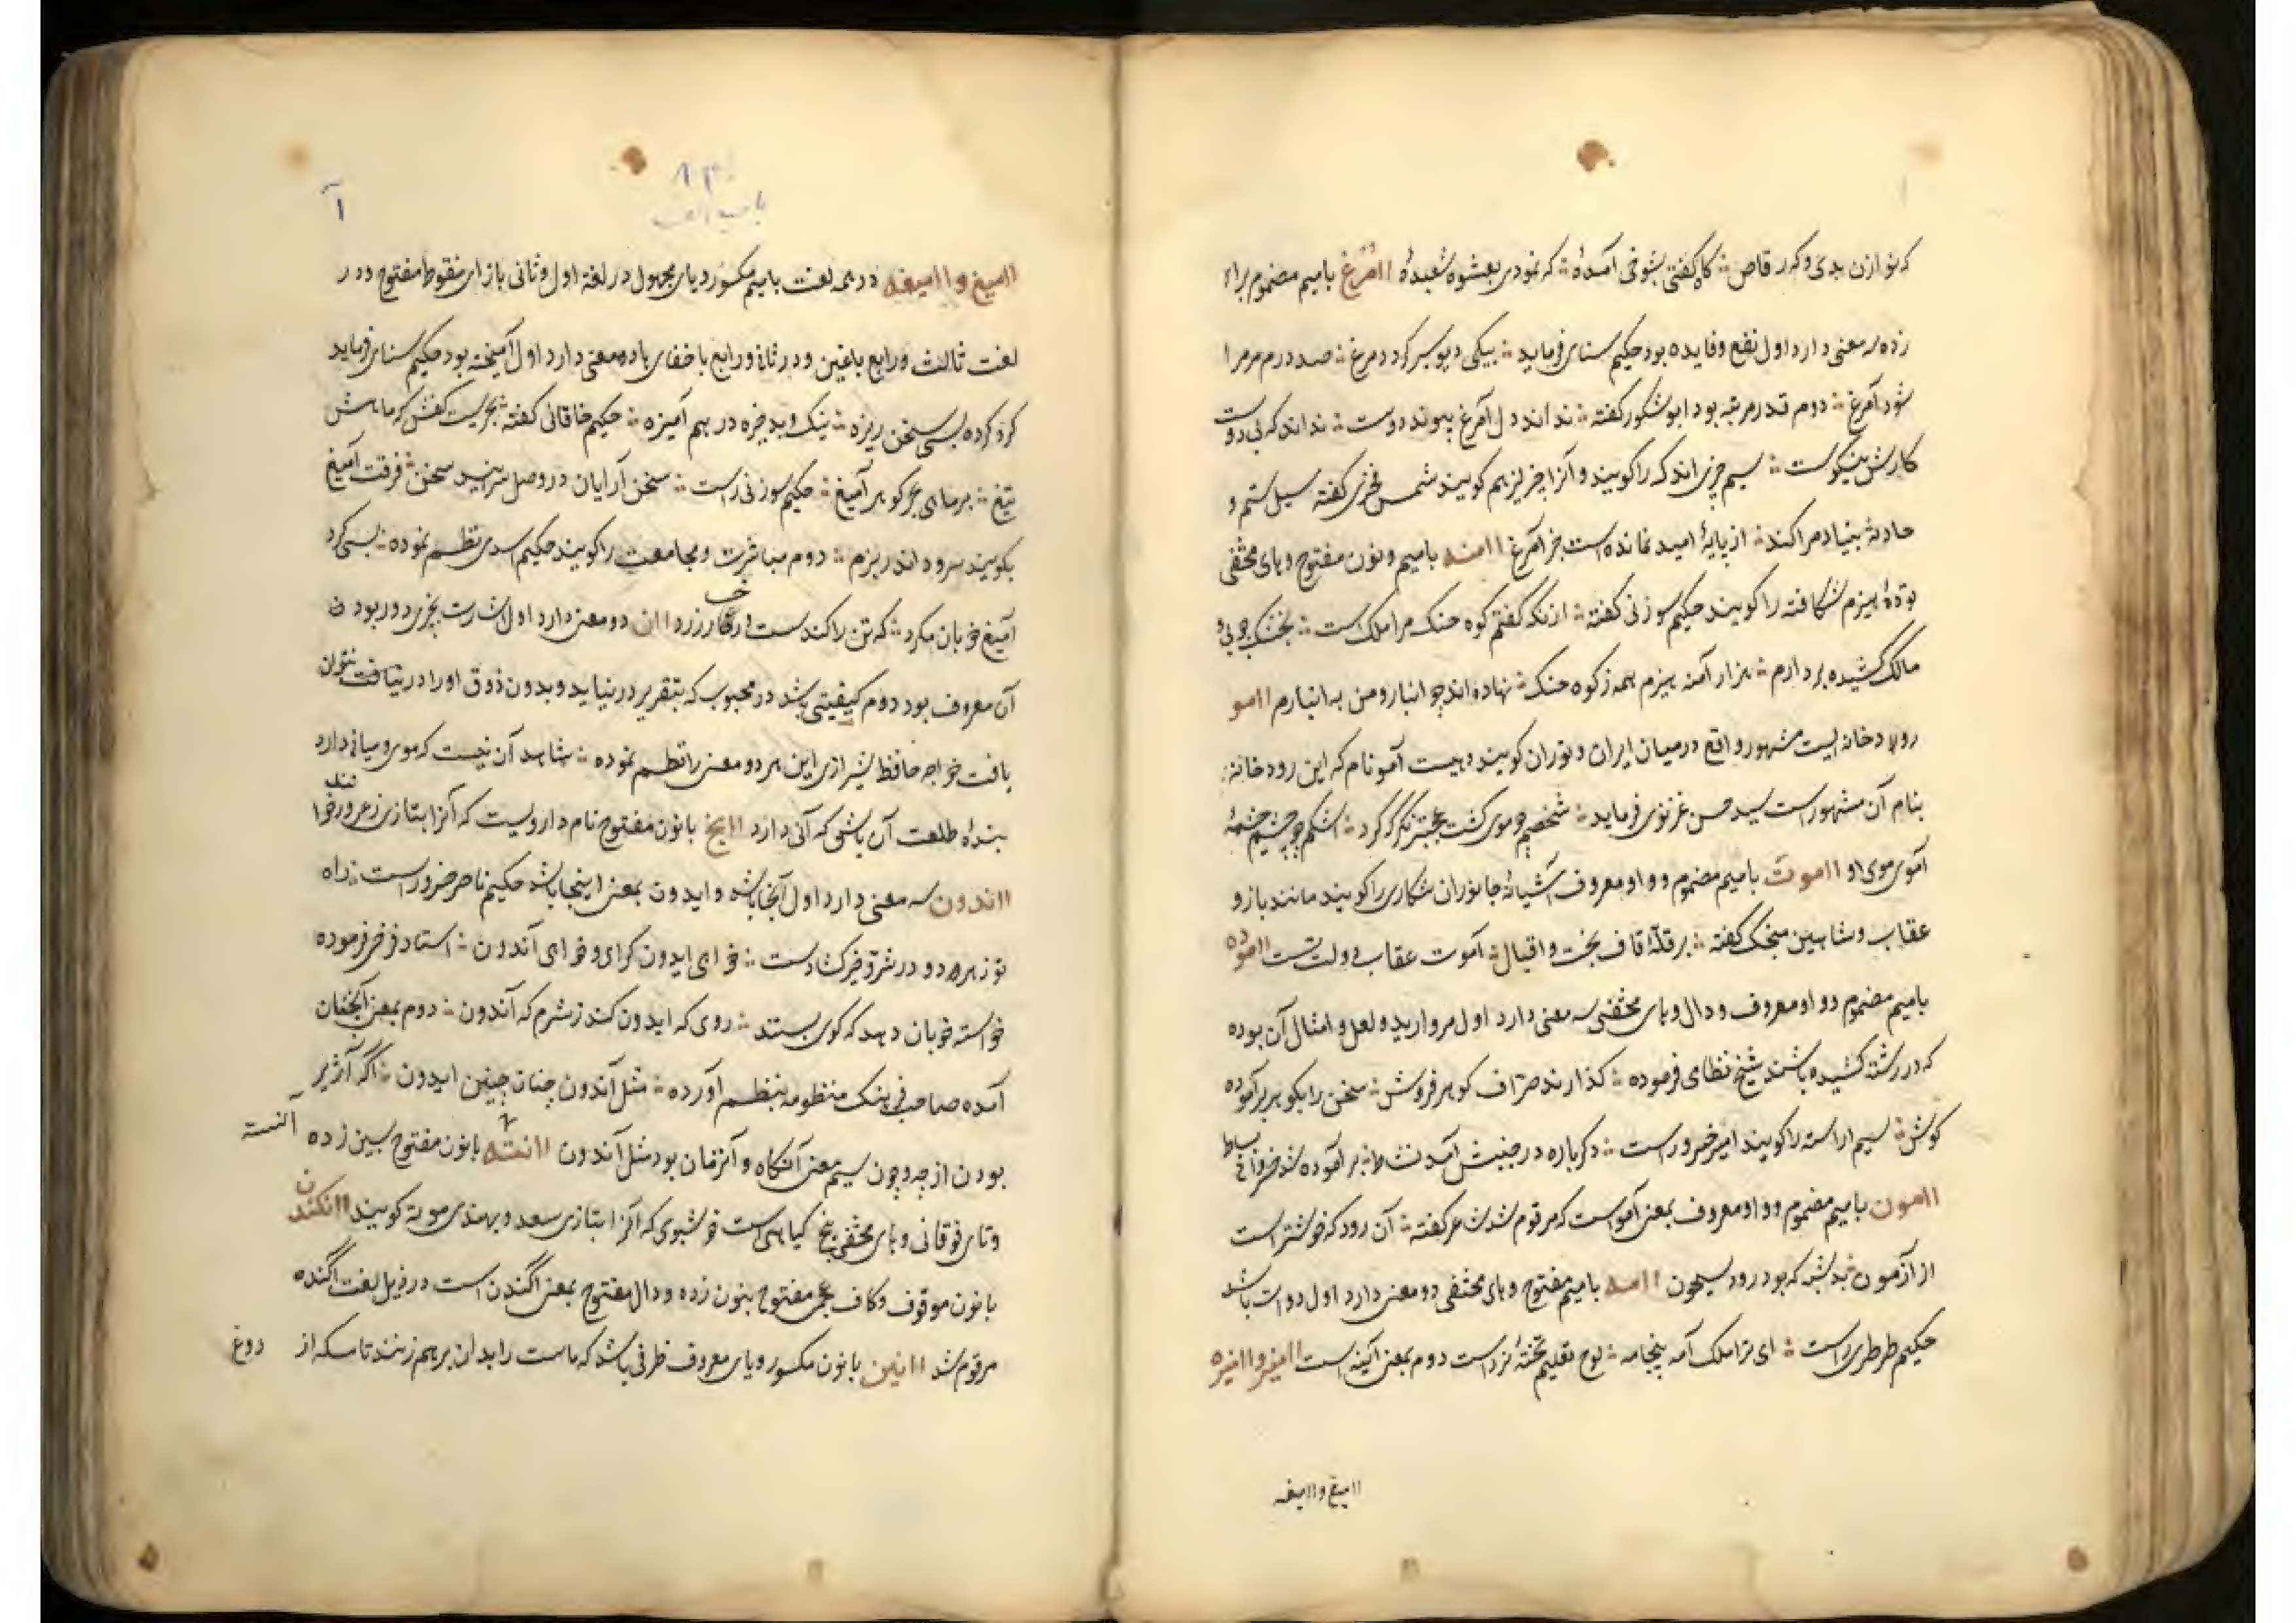 که نو ازن بدی و که رقاص ؞ کاه کفتی بشوخی آمدهٔ ؞ که نمودی بعشوه شعبدهٔ اامرغ بامیم مضموم براء
زده سه معنی دارد اول نفع و فایده بود حکیم سنای فرماید ؞ بیکی دیو سر کرد دمرغ ؞ صد درم مر مرا
شود آمرغ ؞ دوم قدر مرتبه بود ابوشکور کفته ؞ نداند دل آمرغ پیوند دوست ؞ نداند که بی دوست
کارش نیکوست ؞ سیم چیزی اندک را کویند و آنرا چیز لیز هم کویند شمس فخری کفته سیل ستم و
حادثه بنیاد مرا کند ؞ از پایهٔ امید نمانده است جز آمرغ ااامنه بامیم و نون مفتوح و های مختفی
تودهٔ هیزم شکافته را کویند حکیم سوزنی کفته ؞ ازنکه گفتم کوه حنک مرا ملک است ؞ بخشک چوبی و
مالک کشیده بر دارم ؞ هزار آمنه هیزم همه ز کوه حنک ؞ نهاده اند چو انبار و من به انبارم ااامو
رودخانه ایست مشهور واقع درمیان ایران و توران کویند دهیست آمو نام که این رودخانه
بنام آن مشهور است سید حسن غزنوی فرماید ؞ شخصیم چو موی کشت عجبتر نکر کرد ؞ اشکم چو چشم چشمهٔ
آموی موی او ااموت بامیم مضموم و واو معروف آشیانهٔ جانوران شکاری را کویند مانند باز و
عقاب و شاهین منجک کفته ؞ بر قلهٔ قاف بخت و اقبال ؞ آموت عقاب دولت تست ااموده
بامیم مضموم و واو معروف و دال و های مختفی سه معنی دارد اول مروارید و لعل و امثال آن بوده
که در رشته کشیده باشند شیخ نظامی فرموده ؞ کذارند صراف کوهر فروش ؞ سخن را بکوهر بر آموده
کوش ؞ سیم اراسته را کویند امیر خسرو راست ؞ دکر باره در جنبش آمد نشاط ؞ بر آموده شد خسروانی بساط
اامون بامیم مضموم و واو معروف بمعنی آمو است که مرقوم شد شاعر کفته ؞ آن رود که خوشتر است
از آزمون ؞ که بود رود سیحون اامه بامیم مفتوح و های مختفی دو معنی دارد اول دوات باشد
حکیم طرطری راست ؞ ای ترا ملک آمه پنجامه ؞ لوح تعلیم تختهٔ نرد است دوم بمعنی آکنیه است ااامیز و اامیزه
اامیغ و اامیغه
۸۳
باب الف
آ
اامیغ و اامیغه در همه لغت بامیم مکسور و یای مجهول در لغة اول و ثانی بازای منقوط مفتوح و در
لغت ثالث و رابع باغین و در ثانی و رابع باخفای ها دو معنی دارد اول آمیخته بود حکیم سنای فرماید
کرد کرده بسی سخن ریزه ؞ نیک و بد جزه در هم آمیزه ؞ حکیم خاقانی کفته ؞ بحریست کفش که ماهش
تیغ ؞ برمای عمر کوهر آمیغ ؞ حکیم سوزنی راست ؞ سخن آرایان در وصل سراید سخن ؞ فرقت آمیغ
بکویند سرود اندر بزم ؞ دوم مباشرت و مجامعت را کویند حکیم اسدی نظم نموده ؞ بسی کرد
آمیغ خوبان مکرد ؞ که تن را کند سست و رخساره زرد اان دو معنی دارد اول اشارت بچیزی دور بود و
آن معروف بود دوم کیفیتی باشد در محبوب که بتقریر درنیاید و بدون ذوق او را در نیافت نتوان
یافت خواجه حافظ شیرازی این هر دو معنی را نظم نموده ؞ شاهد آن نیست که موی و میانی دارد
بندهٔ طلعت آن باشی که آنی دارد ااانج بانون مفتوح نام دارویست که آنرا بتازی زعرور خوانند
ااندون سه معنی دارد اول آنجا باشد و ایدون بمعنی اینجا باشد حکیم ناصر خسرو راست ؞ راه
تو زهره دو در شر و خیر کشاد است ؞ خواهی ایدون کرای و خواهی آندون ؞ استاد فرخی فرموده
خواسته خوبان دهد که کوی بستند ؞ روی که ایدون کند ز شرم که آندون ؞ دوم بمعنی آنچنان
آمده صاحب فرهنک منظومه بنظم آورده ؞ مثل آندون چنان چنین ایدون ؞ اکر آژیر
بودن از چه و چون سیم بمعنی آنکاه و آنزمان بود مثل آندون ااانسته بانون مفتوح بسین زده
آنسته
و تای فوقانی و های مختفی بیخ کیاهی است خوشبوی که آنرا بتازی سعد و بهندی موته کویند ااانکندن
بانون موقوف و کاف عجمی مفتوح بنون زده و دال مفتوح بمعنی اکندن است در ذیل لغت اکنده
مرقوم شد ااانین بانون مکسور و یای معروف ظرفی باشد که ماست را بدان برهم زنند تا مسکه از دوغ